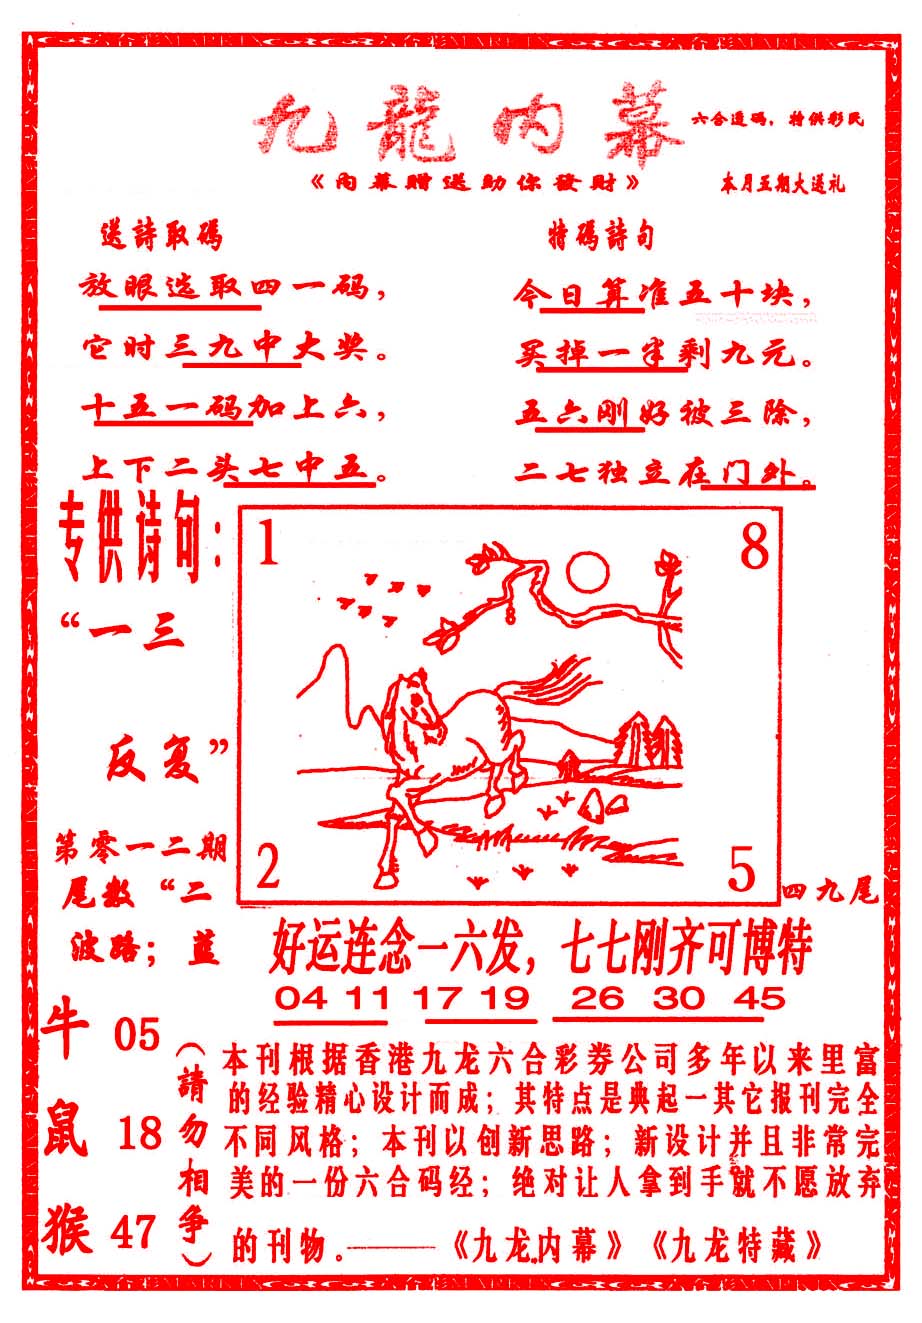 九龍内幕
六合透码，特供彩民
《内幕赠送助你發财》
本月五期大送礼
送詩取码
放眼选取四一码，
它时三九中大奖。
十五一码加上六，
上下二头七中五。
特碼詩句
今日算准五十块，
买掉一半剩九元。
五六刚好被三除，
二七独立在门外。
专供诗句：
“一三
反复”
第零一二期
尾数“二
波路；蓝
1
8
2
5
四九尾
好运连念一六发，七七刚齐可博特
04 11 17 19 26 30 45
牛 05
鼠 18
猴 47
（請勿相争）
本刊根据香港九龙六合彩券公司多年以来里富
的经验精心设计而成；其特点是典起一其它报刊完全
不同风格；本刊以创新思路；新设计并且非常完
美的一份六合码经；绝对让人拿到手就不愿放弃
的刊物。——《九龙内幕》《九龙特藏》